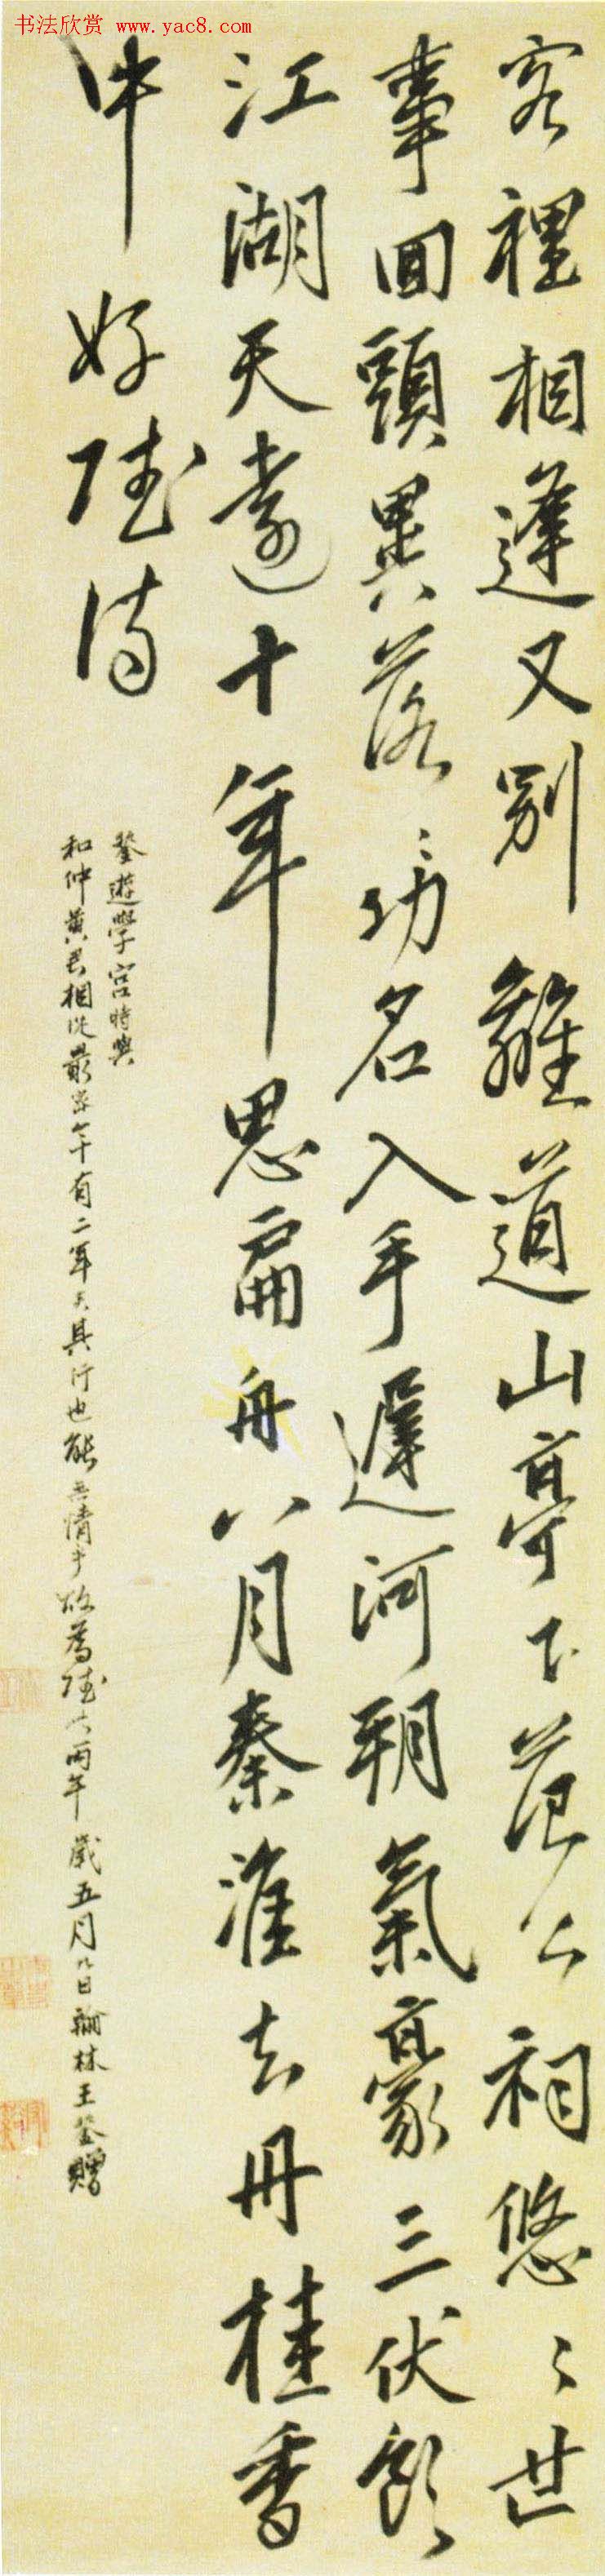 书法欣赏 www.yac8.com
客裡相逢又別離道山亭下范公祠悠々世
事回頭異落々功名入手遲河朔氣豪三伏飲
江湖天遠十年思扁舟八月秦淮去丹桂香
中好陸詩
鏊遊學宮時與
和仲黃君相從最
年有二年矣其行也能無情乎故為
丙午歲五月
日翰林王鏊贈